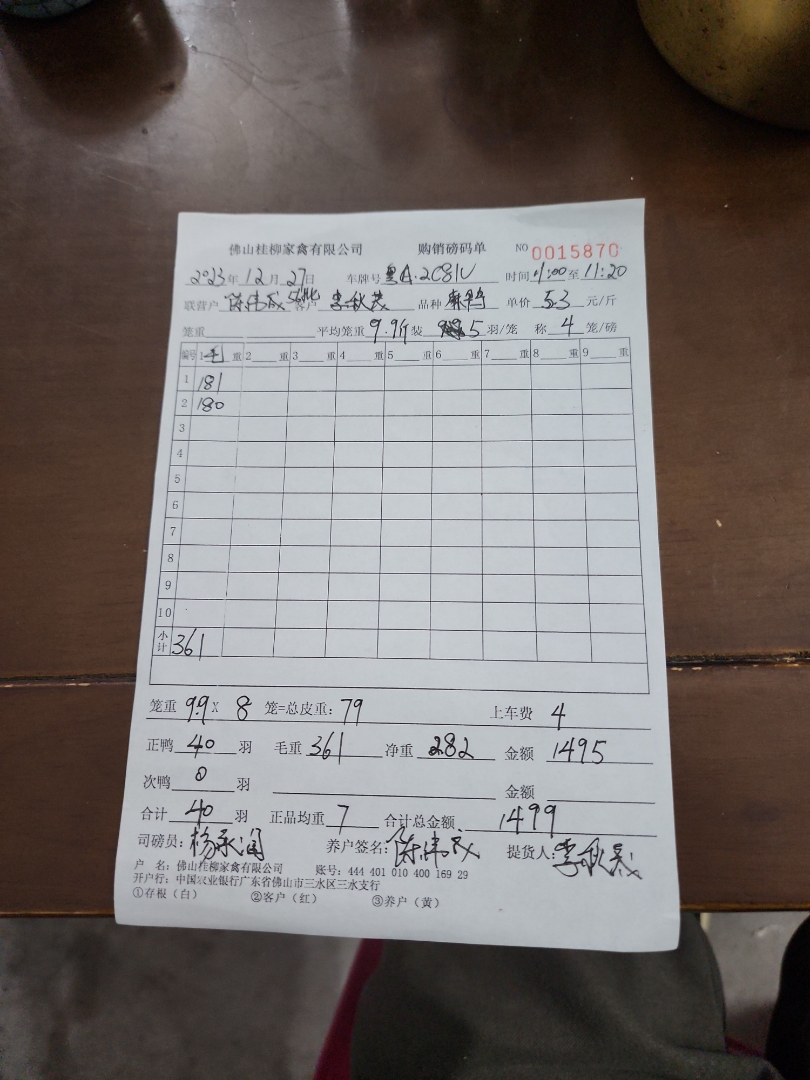 佛山桂柳家禽有限公司 购销磅码单 NO 0015870
2023年12月27日 车牌号 黑A·2C81U 时间 11:00至11:20
联营户 陈伟成 客户 李秋茂 品种 麻鸭 单价 5.3 元/斤
笼重 平均笼重 9.9斤 装 5 羽/笼 称 4 笼/磅
编号 1毛重 2 重 3 重 4 重 5 重 6 重 7 重 8 重 9 重
1 181
2 180
3
4
5
6
7
8
9
10
小计 361
笼重 9.9 X 8 笼=总皮重: 79 上车费 4
正鸭 40 羽 毛重 361 净重 282 金额 1495
次鸭 0 羽 金额
合计 40 羽 正品均重 7 合计总金额 1499
司磅员: 杨永润 养户签名: 陈伟成 提货人: 李秋茂
户 名: 佛山桂柳家禽有限公司 账号: 444 401 010 400 169 29
开户行: 中国农业银行广东省佛山市三水区三水支行
①存根（白） ②客户（红） ③养户（黄）